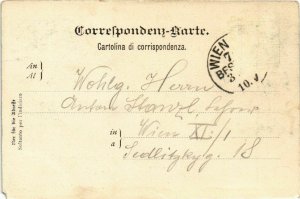 Correspondenz-Karte.
Cartolina di corrispondenza.
WIEN
BES
3
10.
An
Al
Wohlg. Herrn
Anton
in
a
Wien XI/1
Sedlitzkyg. 18
Nur für die Adresse
Soltanto per l'indirizzo